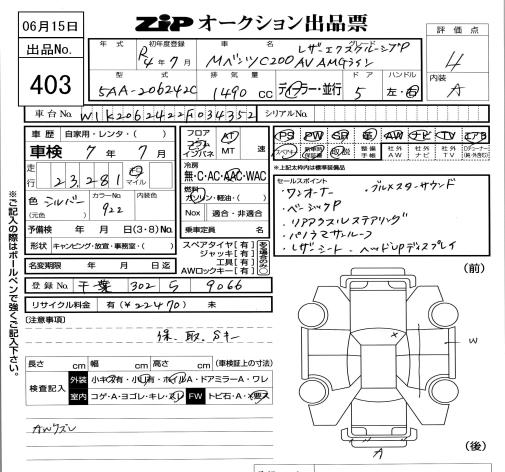 06月15日
ZiP オークション出品票
出品No.
403
評価点
4
内装
A
年式 初年度登録 車名 グレード
R4年7月 Mベンツ C200 レザーエクスクルーシブP
AV AMGライン
型式 排気量 ドア ハンドル
5AA-206242C 1490 CC ディーラー・並行 5 左・右
車台No. W1K2062422F034352 シリアルNo.
車歴 自家用・レンタ・( )
車検 7年 7月
走行 23,281 km マイル
色 シルバー (元色) カラーNo. 922
予備検 年 月 日(3・8)No.
形状 キャンピング・放送・事務室・( )
名変期限 年 月 日迄
フロア コラム インパネ AT MT 速
冷房
無・C・AC・AAC・WAC
燃料
ガソリン・軽油・( )
Nox 適合・非適合
乗車定員 名
スペアタイヤ[有]
ジャッキ[有]
工具[有]
AWロックキー[有]
有る場合のみ○
PS PW SR 革 AW ナビ TV エアB
スペアキー 新車時保証書 取説 整備手帳 社外AW 社外ナビ 社外TV
※上記太枠内は標準装備品
セールスポイント
・ワンオーナー ・ブルメスターサウンド
・ベーシックP
・リアアクスルステアリング
・パノラマサンルーフ
・レザーシート ・ヘッドUPディスプレイ
登録No. 千葉 302 S 9066
リサイクル料金 有(¥22470) 未
(注意事項)
保、取、Sキー
長さ cm 幅 cm 高さ cm (車検証上の寸法)
検査記入 外装 小キズ有・小凹有・ホイルA・ドアミラーA・ワレ
室内 コゲ・A・ヨゴレ・キレ・スレ FW トビ石・A・X要ス
AWケズレ
(前)
W
A
(後)
※ご記入の際はボールペンで強くご記入下さい。